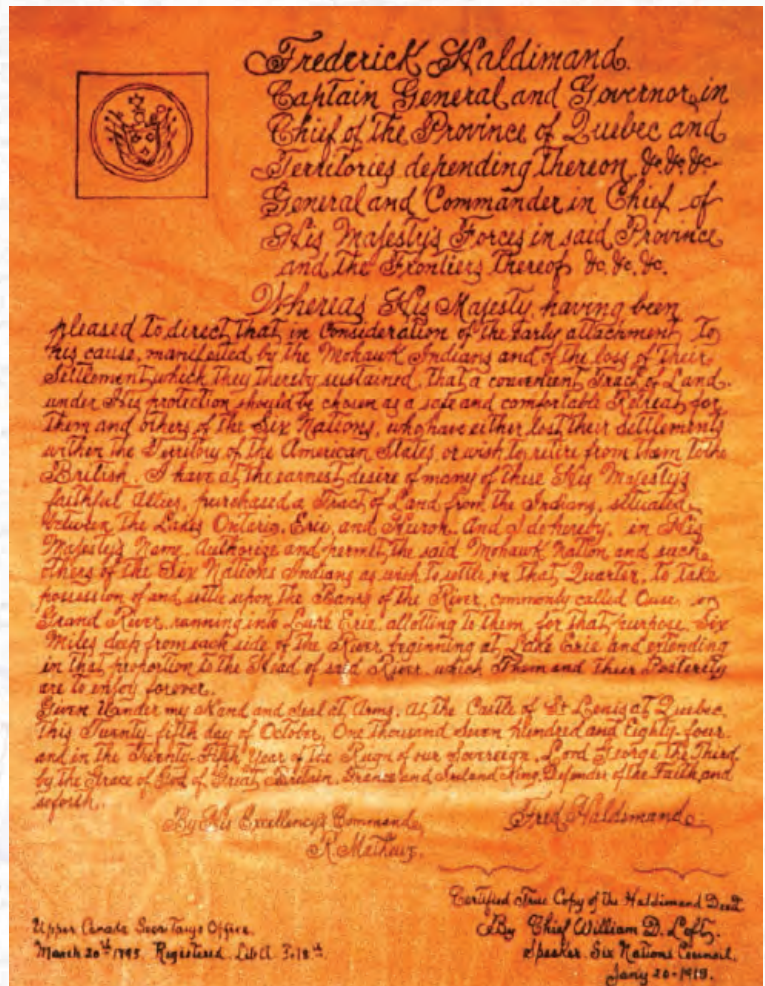 Frederick Haldimand.
Captain General and Governor in
Chief of the Province of Quebec and
Territories depending thereon, &c. &c. &c.
General and Commander in Chief of
His Majesty's Forces in said Province
and the Frontiers thereof, &c. &c. &c.
Whereas His Majesty, having been
pleased to direct that, in Consideration of the Early attachment, To
his cause, manifested by the Mohawk Indians and of the loss of their
Settlement, which they thereby sustained, that a convenient Track of Land,
under His protection should be chosen as a safe and comfortable Retreat for
them and others of the Six Nations, who have either lost their settlements
within the Territory of the American States, or wish to retire from them to the
British. I have at the earnest desire of many of these His Majesty's
faithful Allies, purchased a Tract of Land from the Indians, situated
between the Lakes Ontario, Erie, and Huron. And I do hereby, in His
Majesty's Name, Authorize and permit, the said Mohawk Nation and such
others of the Six Nations Indians as wish to settle, in that Quarter, to take
possession of and settle upon the Banks of the River, commonly called Ouse, or
Grand River, running into Lake Erie, allotting to them, for that, purpose, Six
Miles deep from each side of the River beginning at, Lake Erie and extending
in that, proportion to the Head of said River, which Them and Their Posterity
are to enjoy forever.
Given Under my Hand and Seal at Arms, at the Castle of St Lewis at Quebec,
this Twenty-fifth day of October, One thousand Seven hundred and Eighty-four
and in the Twenty-Fifth Year of the Reign of our Sovereign, Lord George the Third,
by the Grace of God of Great, Britain, France and Ireland King, Defender of the Faith and
soforth.
By His Excellency's Command, Fred Haldimand.
R. Matheux.
Certified True Copy of the Haldimand Deed
By Chief William D. Loft,
Speaker. Six Nations Council.
Jany 20-1915.
Upper Canada Office.
March 20th 1795. Registered. Lib A. F-18th.